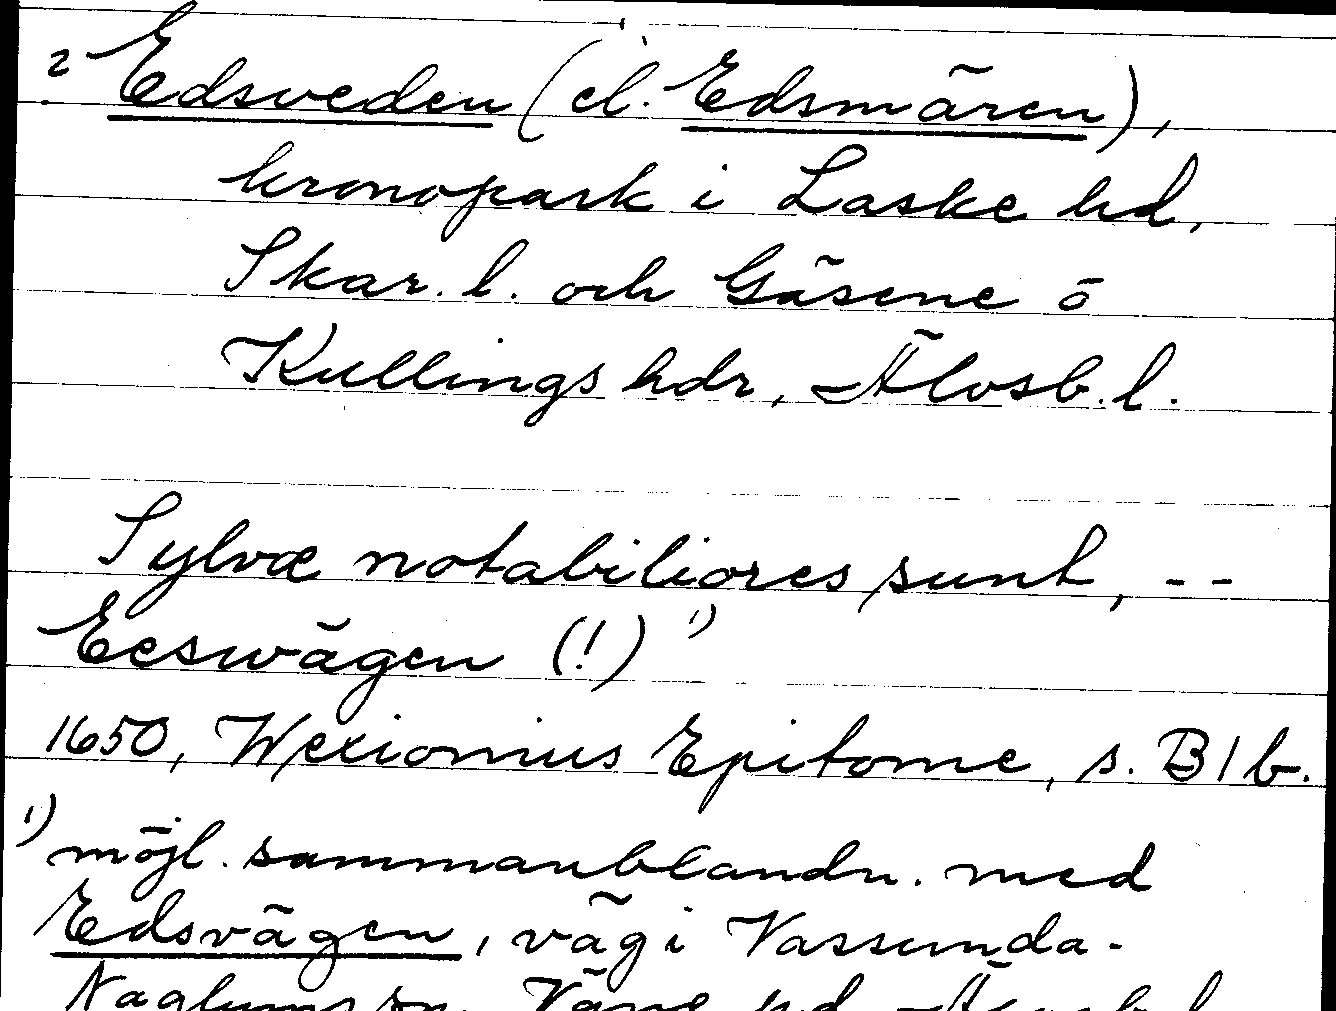 2 Edsveden (el. Edsmären),
kronopark i Laske hd,
Skar. l. och Gäsene o
Kullings hdr, Älvsb. l.
Sylvæ notabiliores sunt, --
Eeswägen (!) 1)
1650, Wexionius Epitome, s. B1b.
1) möjl. sammanblandn. med
Edsvägen, väg i Vassunda-
Naglums sn, Väne hd, Älvsb. l.